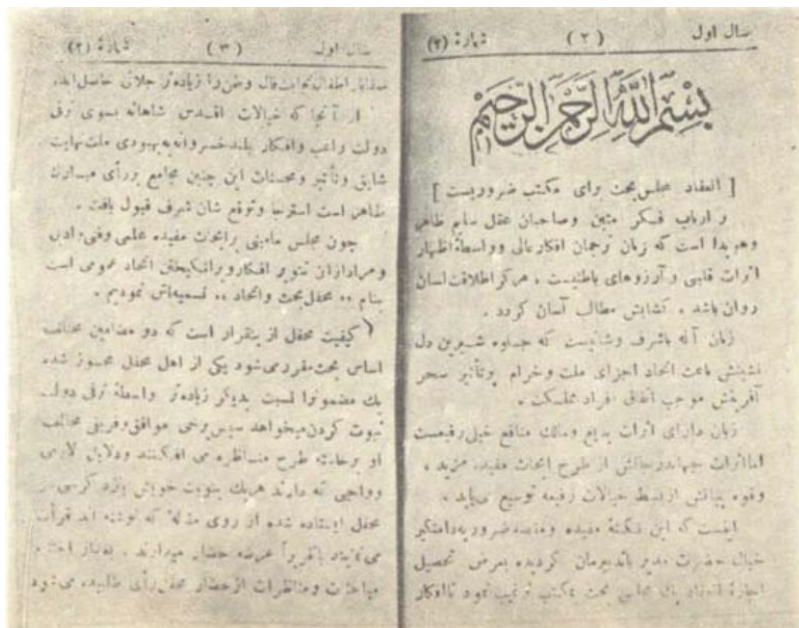 سال اول ( ۲ ) شمارهٔ (۲)
بسم الله الرحمن الرحیم
[ انعقاد مجلس بحث برای مکتب ضروریست ]
و ارباب فکر متین وصاحبان عقل سلیم ظاهر
وهویدا است که زبان ترجمان افکار عالی وواسطهٔ اظهار
اثرات قلبی و آرزوهای باطنیست ، هرکرا طلاقت لسان
روان باشد ، کشایش مطالب آسان کردد .
زبان آلهٔ باشرف وشانیست که جلوه شیرین دل
نشینش باعث اتحاد اجزای ملت وخرام پرتأثیر سحر
آفرینش موجب اتفاق افراد مملکت .
زبان دارای اثرات بدیع ومالک منافع خیلی رفیعست
اما اثرات از طرح ابحاث مفیده مزید ،
وقوه بیانش ازبسط خیالات رفیعه توسیع می‌یابد .
اینست که این نکتهٔ مفیده ومقصد ضروریه دامنکیر
خیال حضرت مدیر کردیده بعرض تحصیل
اجازهٔ مجلس بحث بمکتب ترغیب نمود تا افکار
سال اول ( ۳ ) شمارهٔ (۲)
اطفال وطن را زیاده‌تر جلائی حاصل‌آید.
از آنجا که خیالات اقدس شاهانه بسوی ترقی
دولت راغب وافکار بلند خسروانه به بهبودی ملت نهایت
شایق وتأثیر ومحسنات این چنین مجامع بررأی مبارک
ظاهر است استرجا وتوقع شان شرف قبول یافت .
چون مجلس مامبنی برابحاث مفیده علمی وفنی وادبی
ومرادازان تنویر افکار وبرانکیختن اتحاد عمومی است
بنام «محفل بحث واتحاد» تسمیه‌اش نمودیم .
کیفیت محفل ازینقرار است که دو مضامین مختلف
اساس بحث مقرر می‌شود یکی از اهل محفل مجبور شده
یک مضمونرا نسبت بدیکر زیاده‌تر واسطهٔ ترقی دولت
ثبوت کردن میخواهد سپس برخی موافق وفریقی مخالف
او برخاسته طرح مناظره می افکنند ودلایل لازمی
وواجبی که دارند هریک بنوبت خویش نزد کرسی
محفل ایستاده شده از روی مقالهٔ که نوشته اند قرائت
می‌نمایند یاتقریراً عرضه حضار میدارند . بعداز اختتام
مباحثات ومناظرات ازحضار محفل رأی طلبیده می‌شود